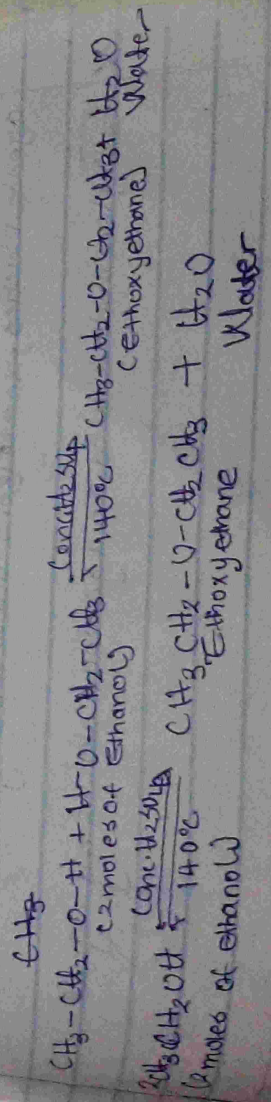 CH3
CH3-CH2-O-H + H-O-CH2-CH3 Conc H2SO4 140°C CH3-CH2-O-CH2-CH3 + H2O
(2moles of Ethanol) (Ethoxyethane) Water
2CH3CH2OH Conc. H2SO4 140°C CH3CH2-O-CH2CH3 + H2O
(2moles of ethanol) Ethoxyethane Water